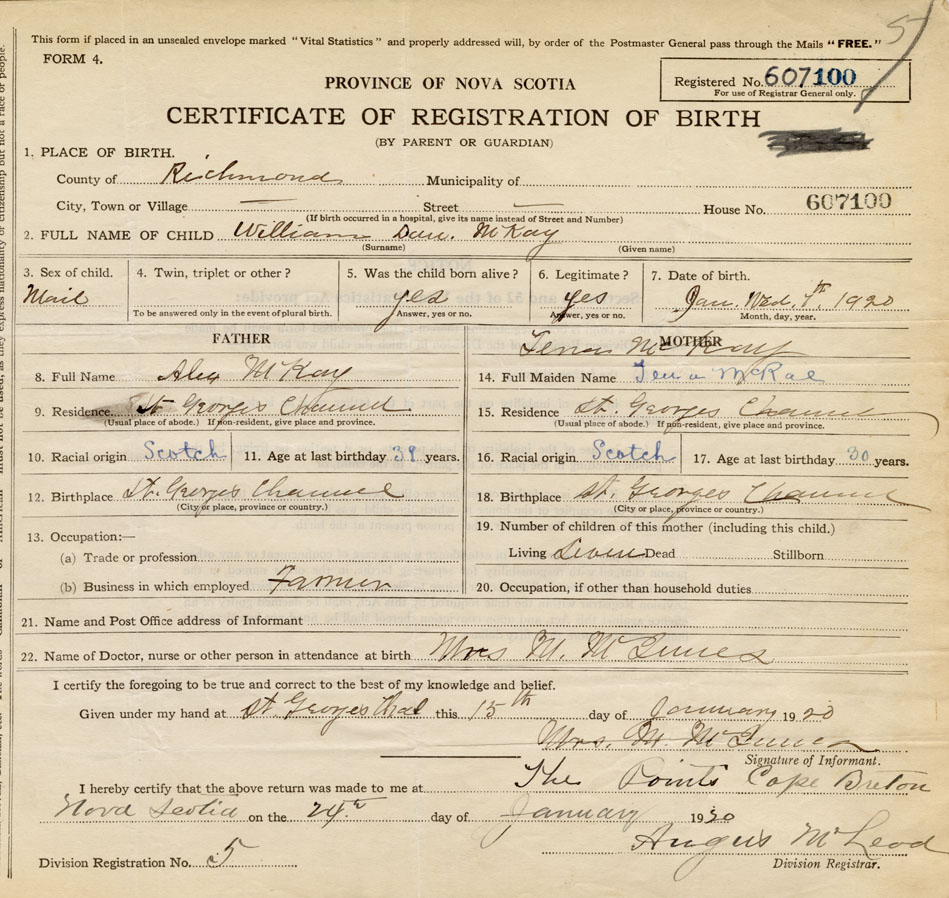 This form if placed in an unsealed envelope marked "Vital Statistics" and properly addressed will, by order of the Postmaster General pass through the Mails "FREE."
5
FORM 4.
PROVINCE OF NOVA SCOTIA
Registered No. 607100
For use of Registrar General only.
CERTIFICATE OF REGISTRATION OF BIRTH
(BY PARENT OR GUARDIAN)
1. PLACE OF BIRTH.
County of Richmond Municipality of
City, Town or Village — Street — House No. 607100
(If birth occurred in a hospital, give its name instead of Street and Number)
2. FULL NAME OF CHILD William Dan. McKay
(Surname) (Given name)
3. Sex of child. 4. Twin, triplet or other? 5. Was the child born alive? 6. Legitimate? 7. Date of birth.
Mail yes yes Jan. Wed. 7th. 1920
To be answered only in the event of plural birth. Answer, yes or no. Answer, yes or no. Month, day, year.
FATHER MOTHER
Tena McKay
8. Full Name Alex McKay 14. Full Maiden Name Tena McRae
9. Residence St Georges Channel 15. Residence St. Georges Channel
(Usual place of abode.) If non-resident, give place and province. (Usual place of abode.) If non-resident, give place and province.
10. Racial origin Scotch 11. Age at last birthday 39 years. 16. Racial origin Scotch 17. Age at last birthday 30 years.
12. Birthplace St. Georges Channel 18. Birthplace St. Georges Channel
(City or place, province or country.) (City or place, province or country.)
13. Occupation:— 19. Number of children of this mother (including this child.)
(a) Trade or profession Living Seven Dead Stillborn
(b) Business in which employed Farmer 20. Occupation, if other than household duties
21. Name and Post Office address of Informant
22. Name of Doctor, nurse or other person in attendance at birth Mrs M. McInnes
I certify the foregoing to be true and correct to the best of my knowledge and belief.
Given under my hand at St. Georges Chal this 15th day of January 1920
Mrs. M. McInnes
Signature of Informant.
I hereby certify that the above return was made to me at The Points Cape Breton
Nova Scotia on the 24th day of January 1920
Angus McLeod
Division Registration No. 5 Division Registrar.